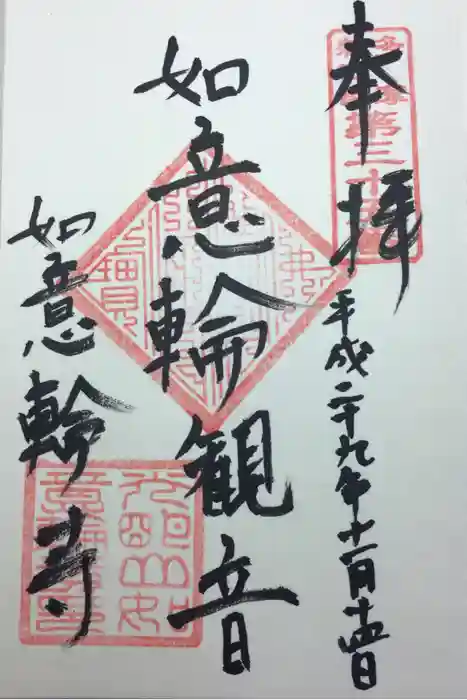 奉拝
平成二十九年十一月十四日
如意輪観音
如意輪寺